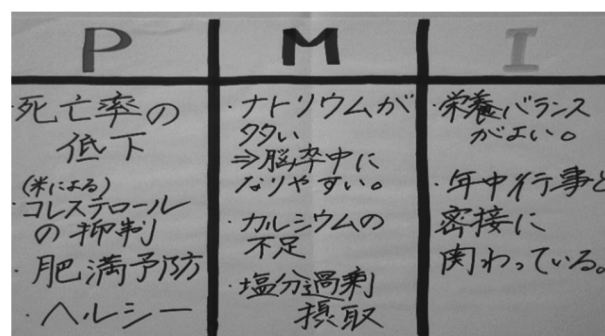 P
・死亡率の
低下
(米による)
・コレステロール
の抑制
・肥満予防
・ヘルシー
M
・ナトリウムが
多い
⇒脳卒中に
なりやすい。
・カルシウムの
不足
・塩分過剰
摂取
I
・栄養バランス
がよい。
・年中行事と
密接に
関わっている。